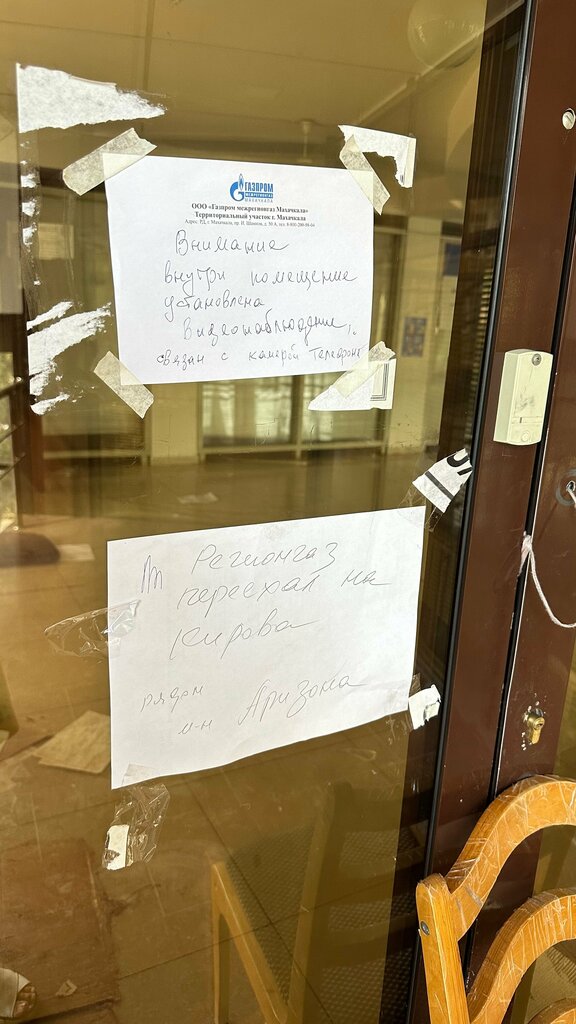 ГАЗПРОМ
МЕЖРЕГИОНГАЗ
МАХАЧКАЛА
ООО «Газпром межрегионгаз Махачкала»
Территориальный участок г. Махачкала
Адрес: РД, г. Махачкала, пр. И. Шамиля, д.
Внимание
внутри помещение
установлена
Видеонаблюдение,
связан с камерой Телефона
Регионгаз
переехал на
Кирова
рядом
м-н Аризона